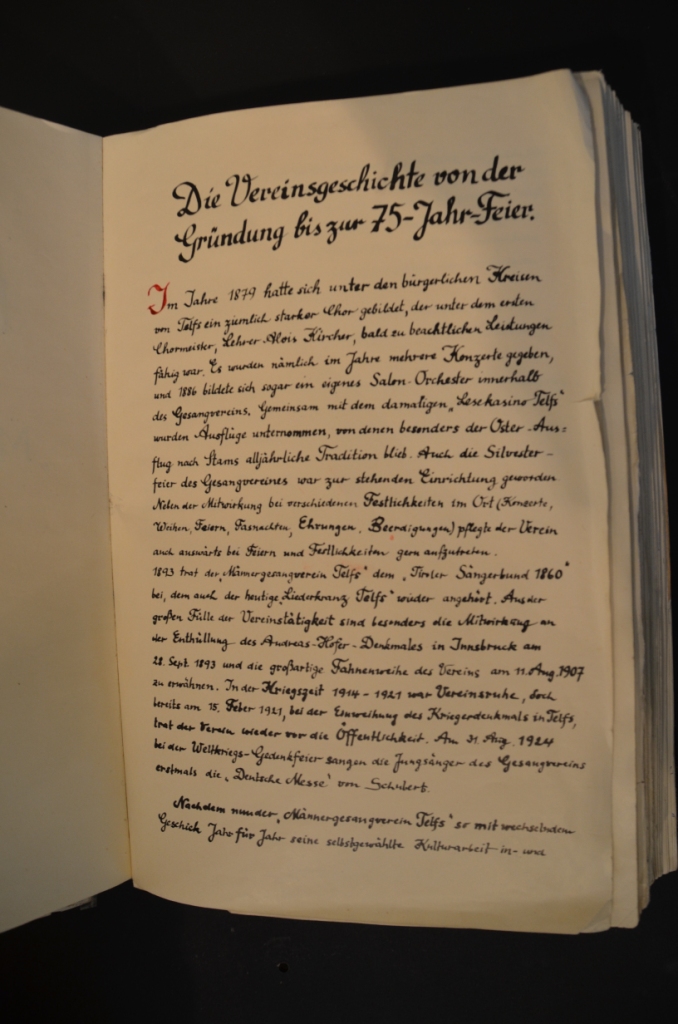 Die Vereinsgeschichte von der
Gründung bis zur 75-Jahr-Feier.
Im Jahre 1879 hatte sich unter den bürgerlichen Kreisen
von Telfs ein ziemlich starker Chor gebildet, der unter dem ersten
Chormeister, Lehrer Alois Kircher, bald zu beachtlichen Leistungen
fähig war. Es wurden nämlich im Jahre mehrere Konzerte gegeben,
und 1886 bildete sich sogar ein eigenes Salon-Orchester innerhalb
des Gesangvereins. Gemeinsam mit dem damaligen „Lesekasino Telfs"
wurden Ausflüge unternommen, von denen besonders der Oster-Aus=
flug nach Stams alljährliche Tradition blieb. Auch die Silvester-
feier des Gesangvereines war zur stehenden Einrichtung geworden
Neben der Mitwirkung bei verschiedenen Festlichkeiten im Ort (Konzerte,
Weihen, Feiern, Fasnachten, Ehrungen, Beerdigungen) pflegte der Verein
auch auswärts bei Feiern und Festlichkeiten gern aufzutreten.
1893 trat der „Männergesangverein Telfs" dem „Tiroler Sängerbund 1860"
bei, dem auch der heutige „Liederkranz Telfs" wieder angehört. Aus der
großen Fülle der Vereinstätigkeit sind besonders die Mitwirkung an
der Enthüllung des Andreas-Hofer-Denkmales in Innsbruck am
28. Sept. 1893 und die großartige Fahnenweihe des Vereins am 11. Aug. 1907
zu erwähnen. In der Kriegszeit 1914 - 1921 war Vereinsruhe, doch
bereits am 15. Feber 1921, bei der Einweihung des Kriegerdenkmals in Telfs,
trat der Verein wieder vor die Öffentlichkeit. Am 31. Aug. 1924
bei der Weltkriegs-Gedenkfeier sangen die Jungsänger des Gesangvereins
erstmals die „Deutsche Messe" von Schubert.
Nachdem nun der „Männergesangverein Telfs" so mit wechselndem
Geschick Jahr für Jahr seine selbstgewählte Kulturarbeit in- und